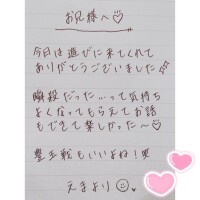 お兄様へ♡
今日は遊びに来てくれて
ありがとうございました☆
瞬殺だった…って気持ち
よくなってもらえてお話
もできて楽しかった〜♡
騎上戦もいいよね！笑
えまより☺♥